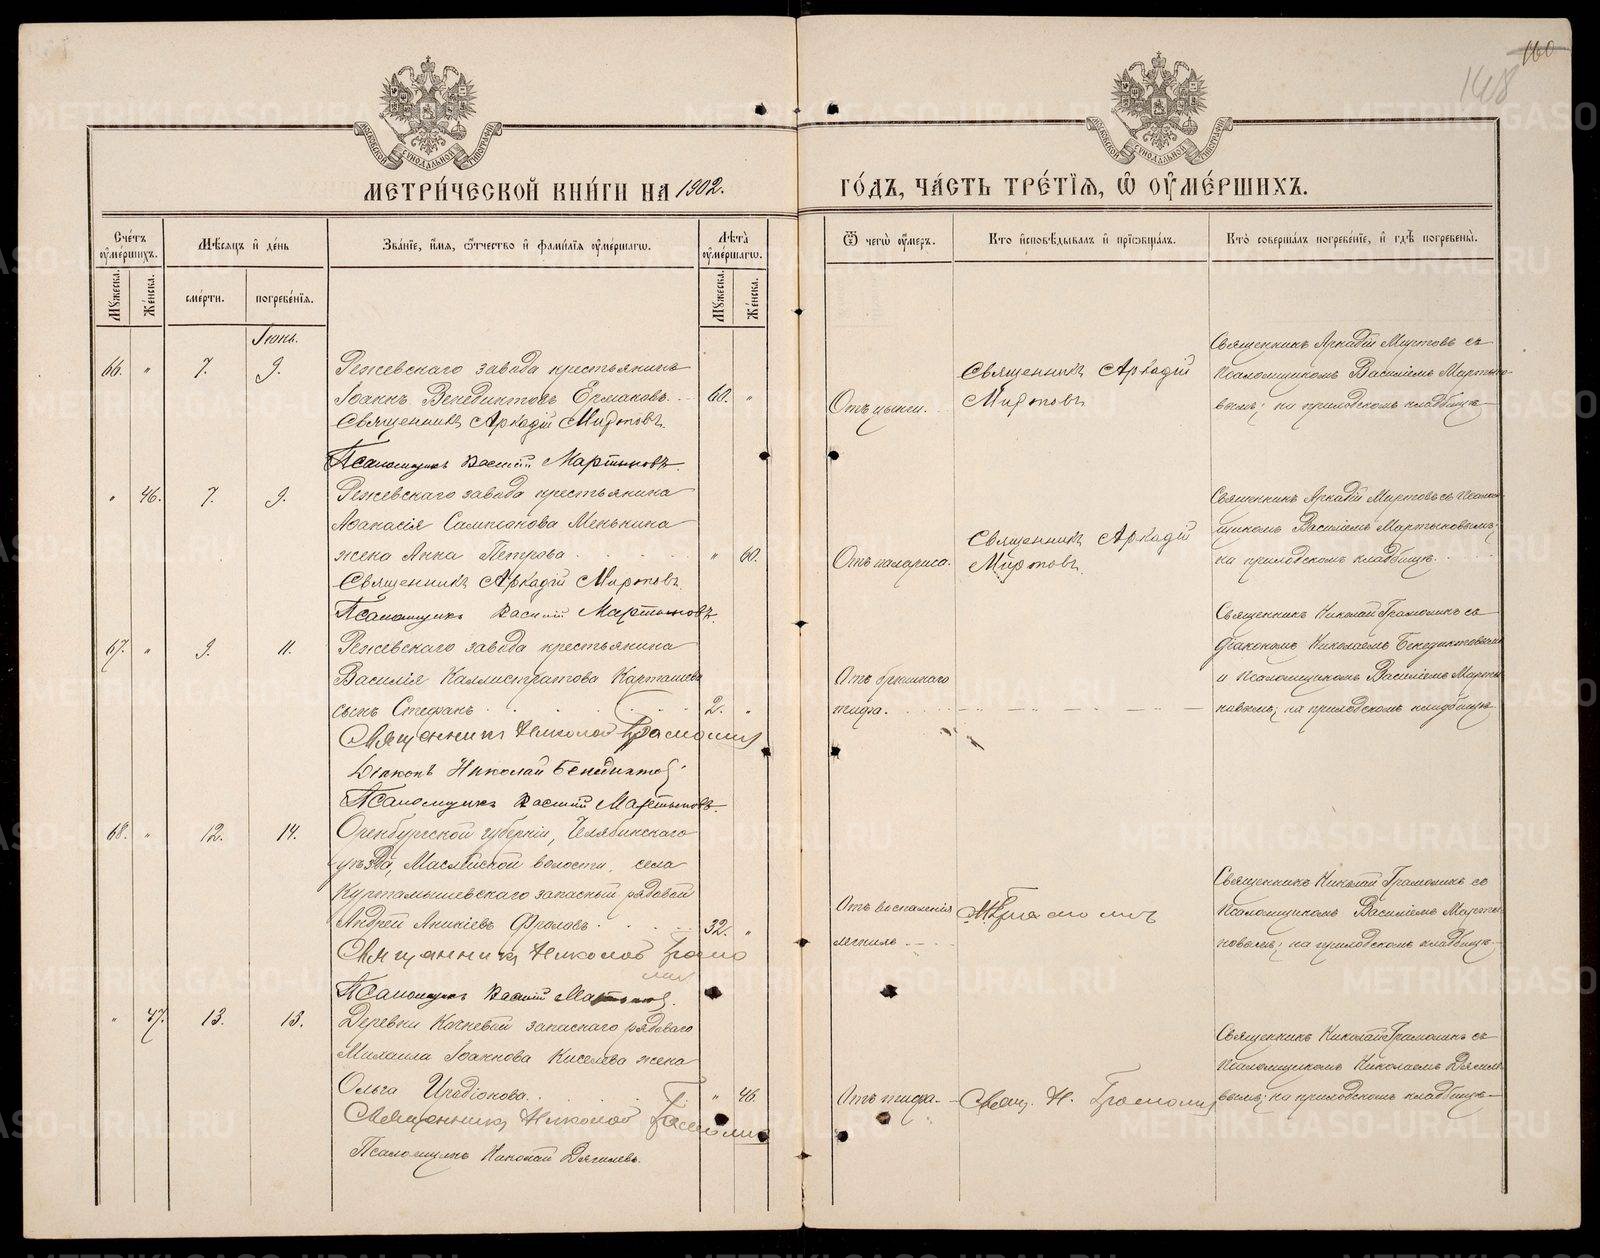 160
148
МЕТРИ́ЧЕСКОЙ КНИ́ГИ НА 1902.
ГО́ДЪ, ЧА́СТЬ ТРЕ́ТІѦ, Ѡ҆ ОУ҆МЕ́РШИХЪ.
Сче́тъ оу҆ме́ршихъ.
Мѣ́сяцъ и҆ де́нь
Зва́нїе, и҆́мя, ѻ҆́тчество и҆ фами́лїя оу҆ме́ршагѡ.
Лѣ́та оу҆ме́ршагѡ.
Ѿ чегѡ̀ оу҆́меръ.
Кто̀ и҆сповѣ́дывалъ и҆ прїѡбща́лъ.
Кто̀ соверша́лъ погребе́нїе, и҆ гдѣ̀ погребены̀.
Мꙋ́жеска.
Же́нска.
сме́рти.
погребе́нїя.
Мꙋ́жеска.
Же́нска.
Іюнь.
66. " 7. 9.
Режевскаго завода крестьянинъ
Іоаннъ Венедиктовъ Ермаковъ. 60. "
Священникъ Аркадій Миртовъ.
Псаломщикъ Василій Мартыновъ.
Отъ цынги.
Священникъ Аркадій
Миртовъ.
Священникъ Аркадій Миртовъ съ
псаломщикомъ Василіемъ Мартыно-
вымъ; на приходскомъ кладбищѣ
" 46. 7. 9.
Режевскаго завода крестьянина
Аѳанасія Сампсонова Менькина
жена Анна Петрова " 60.
Священникъ Аркадій Миртовъ
Псаломщикъ Василій Мартыновъ.
Священникъ Аркадій
Миртовъ.
Священникъ Аркадій Миртовъ съ псалом-
щикомъ Василіемъ Мартыновымъ;
на приходскомъ кладбищѣ.
67. " 9. 11.
Режевскаго завода крестьянина
Василія Каллистратова Карташева
сынъ Стефанъ 2. "
Священникъ Николай Грамолинъ
Діаконъ Николай Бенедиктовъ
Псаломщикъ Василій Мартыновъ.
Отъ брюшнаго
тифа.
Священникъ Николай Грамолинъ съ
діакономъ Николаемъ Бенедиктовымъ
и псаломщикомъ Василіемъ Марты-
новымъ; на приходскомъ кладбищѣ
68. " 12. 14.
Оренбургской губерніи, Челябинскаго
уѣзда, Маслейской волости, села
Куртамышевскаго запасный рядовой
Андрей Аникіевъ Фроловъ 32. "
Священникъ Николай Грамо
линъ
Псаломщикъ Василій Мартыновъ.
Отъ воспаленія
легкихъ
Н. Грамолинъ
Священникъ Николай Грамолинъ съ
псаломщикомъ Василіемъ Марты-
новымъ; на приходскомъ кладбищѣ.
" 47. 13. 13.
Деревни Кочневой запаснаго рядоваго
Михаила Іоаннова Киселева жена
Ольга Иродіонова. " 46.
Священникъ Николай Грамолинъ
Псаломщикъ Николай Дягилевъ.
Отъ тифа.
Свящ. Н. Грамолинъ
Священникъ Николай Грамолинъ съ
псаломщикомъ Николаемъ Дягиле-
вымъ; на приходскомъ кладбищѣ
METRIKI.GASO-URAL.RU